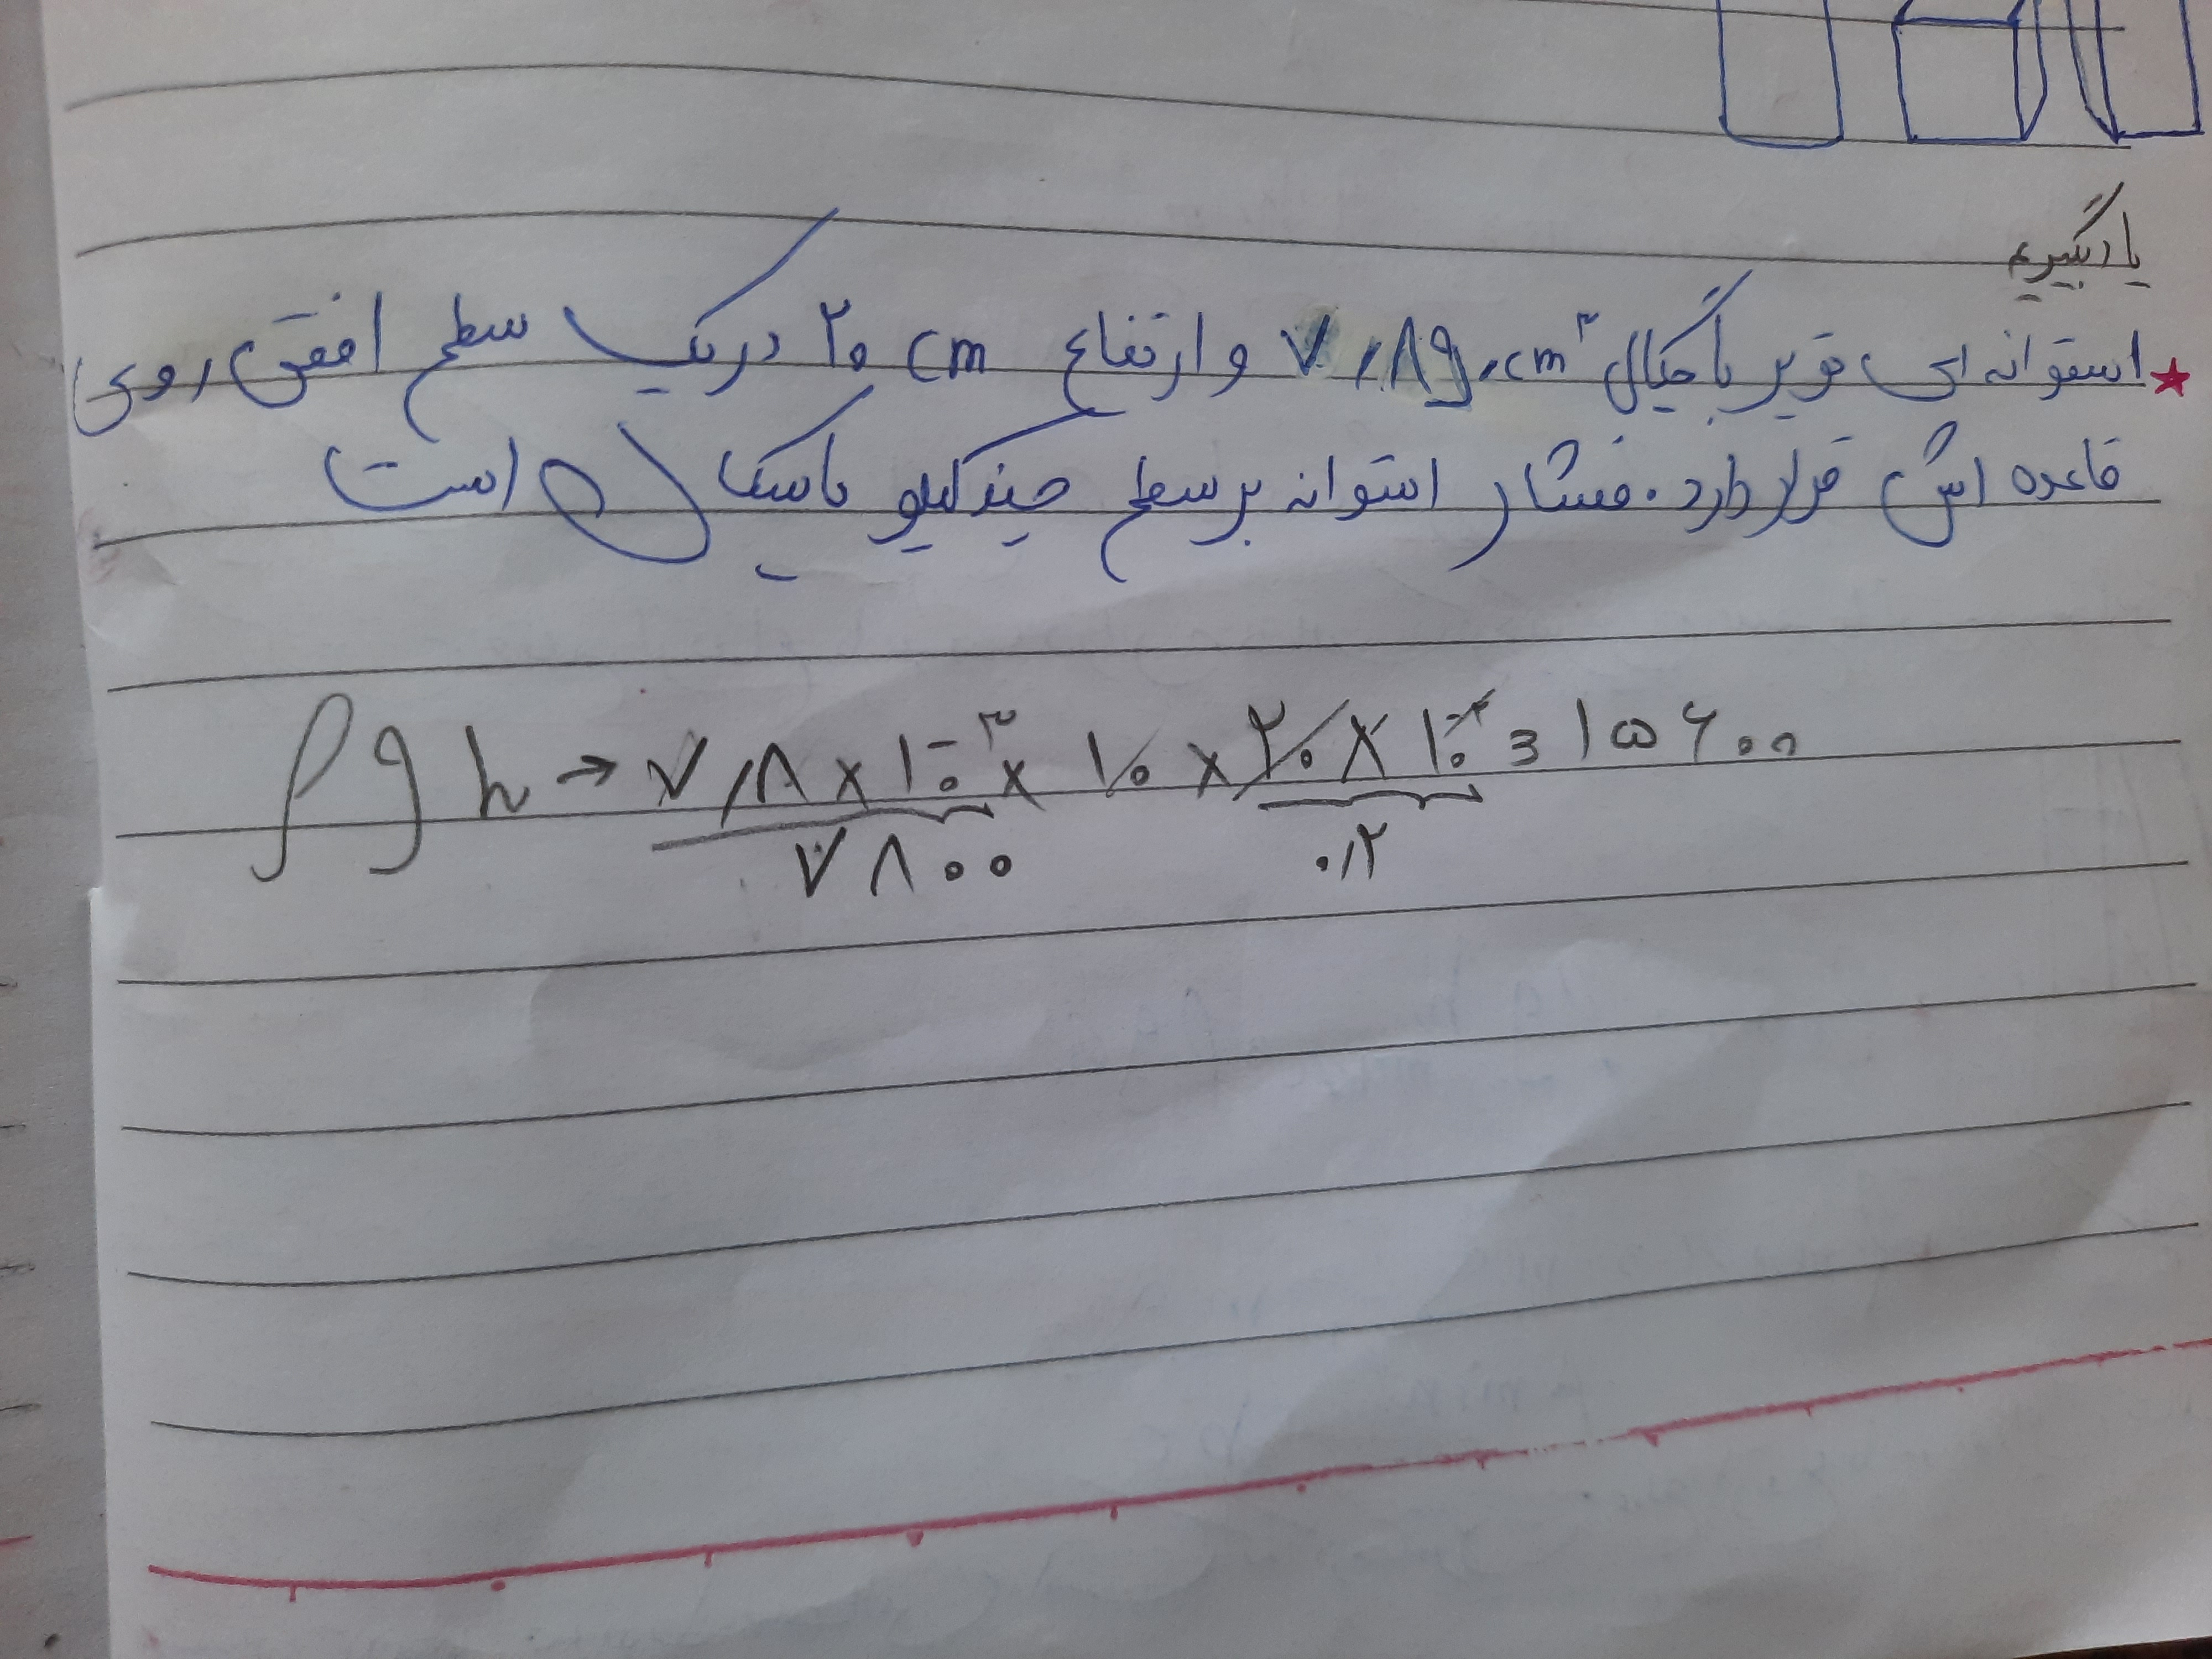 یاد بگیریم
★ استوانه ای توپر با چگالی ۷٫۸g/cm³ و ارتفاع ۲۰ cm در یک سطح افقی روی
قاعده اش قرار دارد. فشار استوانه بر سطح چند کیلو پاسکال است
ρgh → ۷٫۸ × ۱۰⁻³ × ۱۰ × ۲۰ × ۱۰⁻² = ۱۵۶۰۰
۷۸۰۰ ۰٫۲